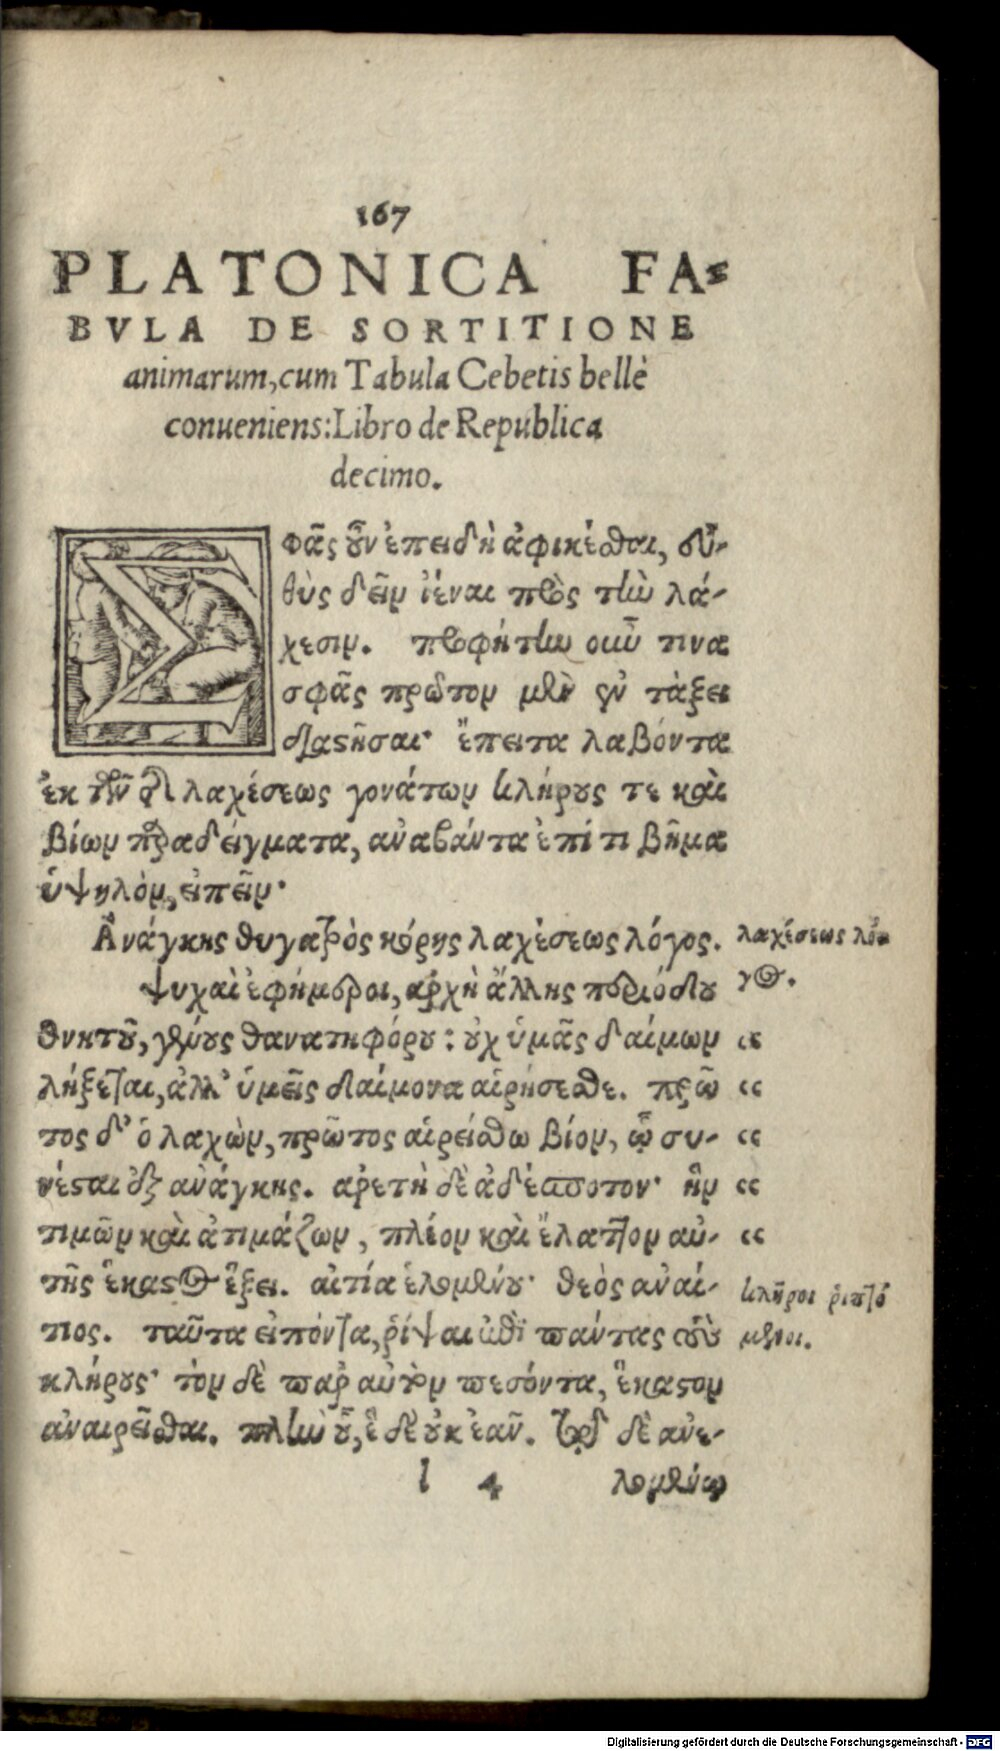 167
PLATONICA FA-
BVLA DE SORTITIONE
animarum, cum Tabula Cebetis bellè
conueniens: Libro de Republica
decimo.
Σφᾶς οὖν ἐπειδὴ ἀφικέσθαι, εὐ-
θὺς δεῖν ἰέναι πρὸς τὴν λά-
χεσιν. προφήτην οὖν τινα
σφᾶς πρῶτον μὲν ἐν τάξει
διαστῆσαι· ἔπειτα λαβόντα
ἐκ τῶν τῆς λαχέσεως γονάτων κλήρους τε καὶ
βίων παραδείγματα, ἀναβάντα ἐπί τι βῆμα
ὑψηλὸν, εἰπεῖν·
Ἀνάγκης θυγατρὸς κόρης λαχέσεως λόγος.
ψυχαὶ ἐφήμεροι, ἀρχὴ ἄλλης περιόδου
θνητοῦ, γένους θανατηφόρου: οὐχ ὑμᾶς δαίμων
λήξεται, ἀλλ' ὑμεῖς δαίμονα αἱρήσεσθε. πρῶ
τος δ' ὁ λαχὼν, πρῶτος αἱρείσθω βίον, ᾧ συ-
νέσται ἐξ ἀνάγκης. ἀρετὴ δὲ ἀδέσποτον· ἣν
τιμῶν καὶ ἀτιμάζων, πλέον καὶ ἔλαττον αὐ-
τῆς ἕκαστος ἕξει. αἰτία ἑλομένου· θεὸς ἀναί-
τιος. ταῦτα εἰπόντα, ῥίψαι ἐπὶ πάντας τοὺς
κλήρους· τὸν δὲ παρ' αὐτὸν πεσόντα, ἕκαστον
ἀναιρεῖσθαι. πλὴν οὗ, ἓ δὲ οὐκ ἐᾶν. τῷ δὲ ἀνε-
l 4 λομένῳ
λαχέσεως λό-
γος.
“
“
“
“
“
κλῆροι ῥιπτό
μενοι.
Digitalisierung gefördert durch die Deutsche Forschungsgemeinschaft - DFG